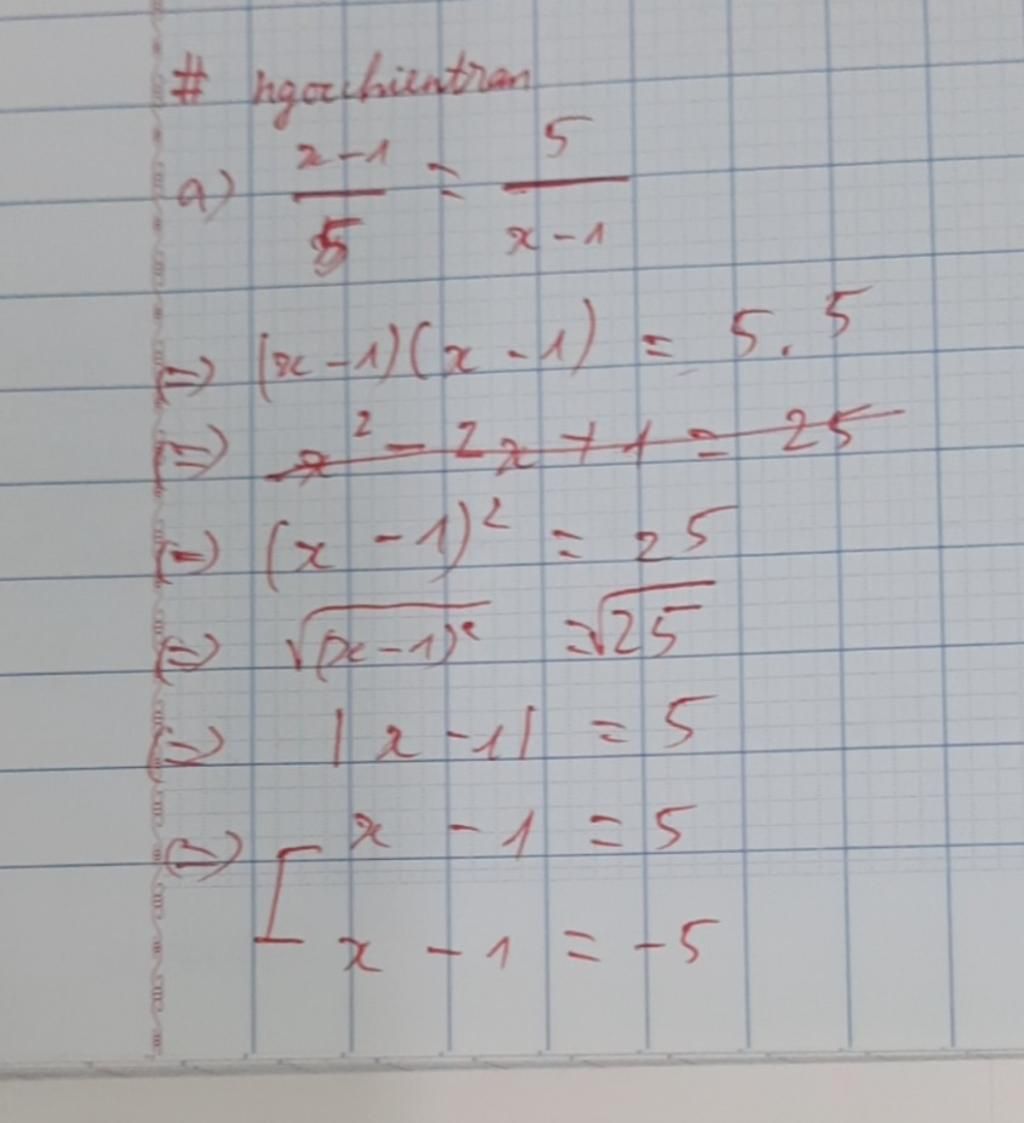 # ngochientran
a) x-1/5 = 5/x-1
⇔ (x-1)(x-1) = 5.5
⇔ x² - 2x + 1 = 25
⇔ (x-1)² = 25
⇔ √(x-1)² = √25
⇔ |x-1| = 5
⇔ [ x - 1 = 5
x - 1 = -5